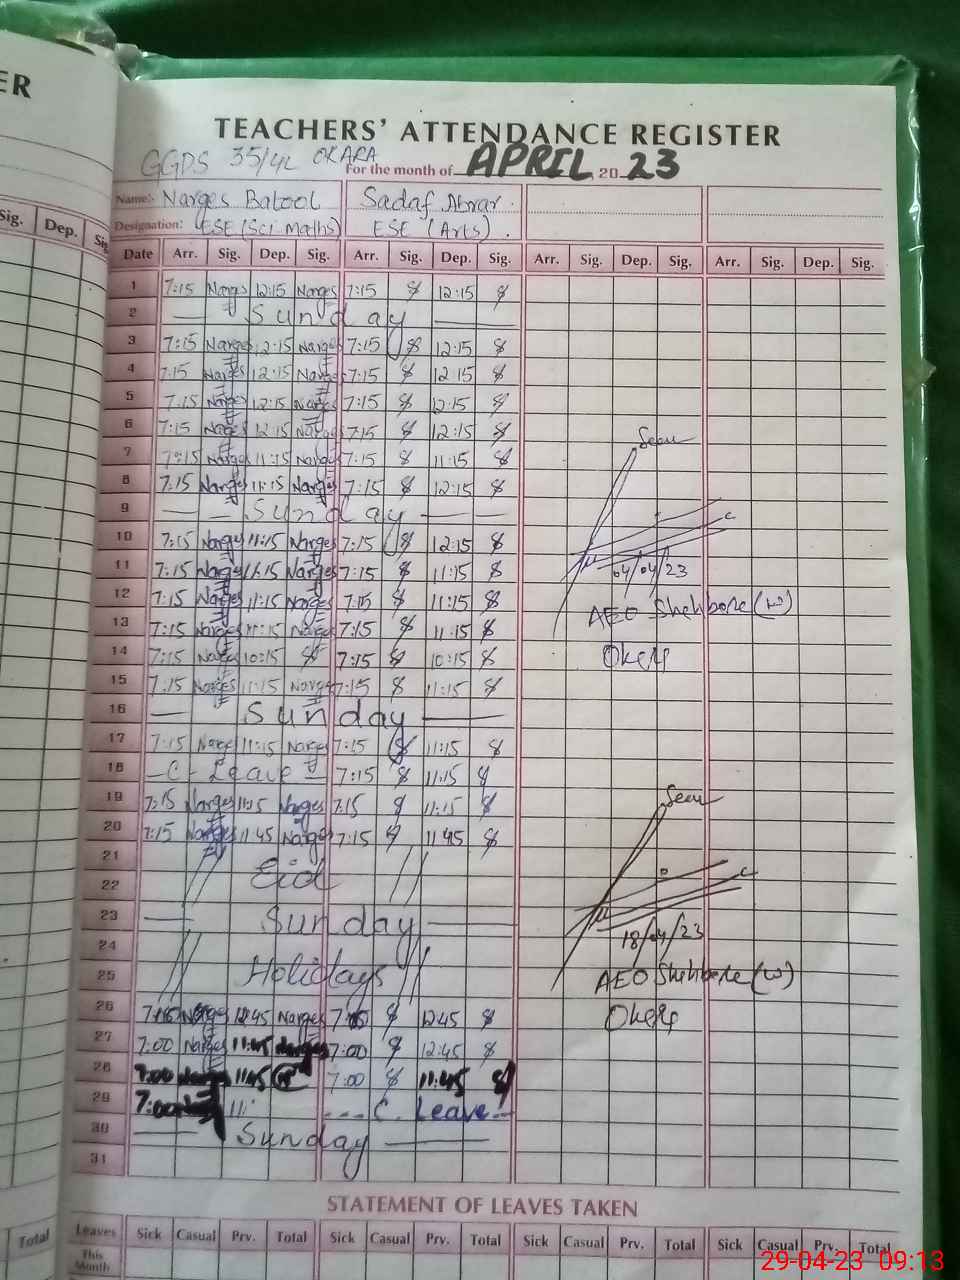 ER
TEACHERS' ATTENDANCE REGISTER
GGPS 35/4L OKARA
For the month of APRIL 2023
Name:- Narges Batool Sadaf Abrar.
Designation: ESE (Sci maths) ESE (Arts).
Sig. Dep. Sig
Date Arr. Sig. Dep. Sig. Arr. Sig. Dep. Sig. Arr. Sig. Dep. Sig. Arr. Sig. Dep. Sig.
1 7:15 Narges 12:15 Narges 7:15 12:15
2 — Sunday —
3 7:15 Narges 12:15 Narges 7:15 12:15
4 7:15 Narges 12:15 Narges 7:15 12:15
5 7:15 Narges 12:15 Narges 7:15 12:15
6 7:15 Narges 12:15 Narges 7:15 12:15
Seen
7 7:15 Narges 11:15 Narges 7:15 11:15
8 7:15 Narges 11:15 Narges 7:15 12:15
9 — Sunday —
10 7:15 Narges 11:15 Narges 7:15 12:15
11 7:15 Narges 11:15 Narges 7:15 11:15
04/04/23
12 7:15 Narges 11:15 Narges 7:15 11:15
AEO (w)
13 7:15 Narges 11:15 Narges 7:15 11:15
14 7:15 Narges 10:15 7:15 10:15
15 7:15 Narges 11:15 Narges 7:15 11:15
16 — Sunday —
17 7:15 Narges 11:15 Narges 7:15 11:15
18 — C - Leave — 7:15 11:15
19 7:15 Narges 11:15 Narges 7:15 11:15
Seen
20 7:15 Narges 11:45 Narges 7:15 11:45
21
22 Eid
23 — Sunday —
18/04/23
24
25 Holidays
AEO (w)
26 Narges 12:45 Narges 12:45
27 7:00 Narges 11:45 Narges 7:00 12:45
28 7:00 Narges 11:45 7:00 11:45
29 7:00 11: --- C. Leave --
30 — Sunday —
31
STATEMENT OF LEAVES TAKEN
Total
Leaves Sick Casual Prv. Total Sick Casual Prv. Total Sick Casual Prv. Total Sick Casual Prv. Total
This Month
29-04-23 09:13